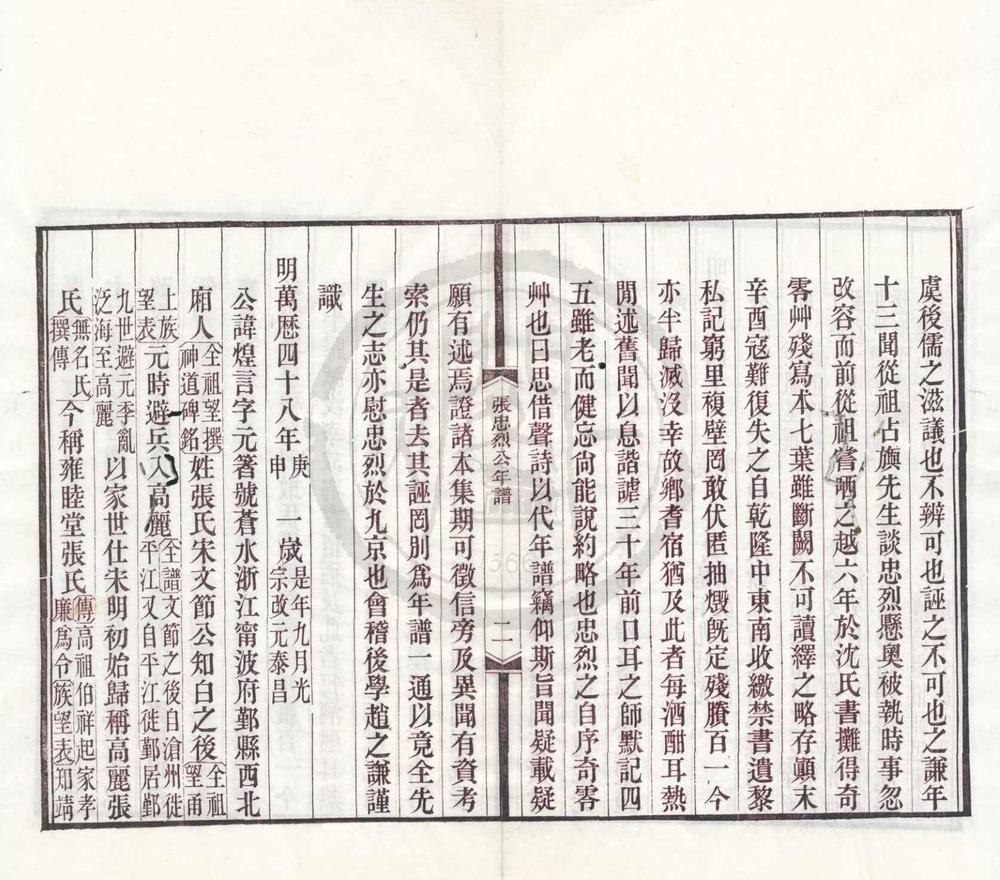 虞後儒之滋議也不辨可也誣之不可也之謙年
十三聞從祖占旟先生談忠烈懸奧被執時事忽
改容而前從祖嘗哂之越六年於沈氏書攤得奇
零艸殘寫本七葉雖斷闕不可讀繹之略存顚末
辛酉寇難復失之自乾隆中東南收繳禁書遺黎
私記窮里複壁罔敢伏匿抽燬旣定殘賸百一今
亦半歸滅沒幸故鄉耆宿猶及此者每酒酣耳熱
閒述舊聞以息諧謔三十年前口耳之師默記四
五雖老而健忘尙能說約略也忠烈之自序奇零
艸也曰思借聲詩以代年譜竊仰斯旨聞疑載疑
張忠烈公年譜
二
願有述焉證諸本集期可徵信旁及異聞有資考
索仍其是者去其誣罔別爲年譜一通以竟全先
生之志亦慰忠烈於九京也會稽後學趙之謙謹
識
明萬歷四十八年庚申一歲是年九月光宗改元泰昌
公諱煌言字元箸號蒼水浙江甯波府鄞縣西北
廂人全祖望撰神道碑銘姓張氏宋文節公知白之後全祖望甬
上族望表元時避兵入高麗全譜文節之後自滄州徙平江又自平江徙鄞居鄞
九世避元季亂泛海至高麗以家世仕宋明初始歸稱高麗張
氏無名氏撰傳今稱雍睦堂張氏傳高祖伯祥起家孝廉爲令族望表知靖